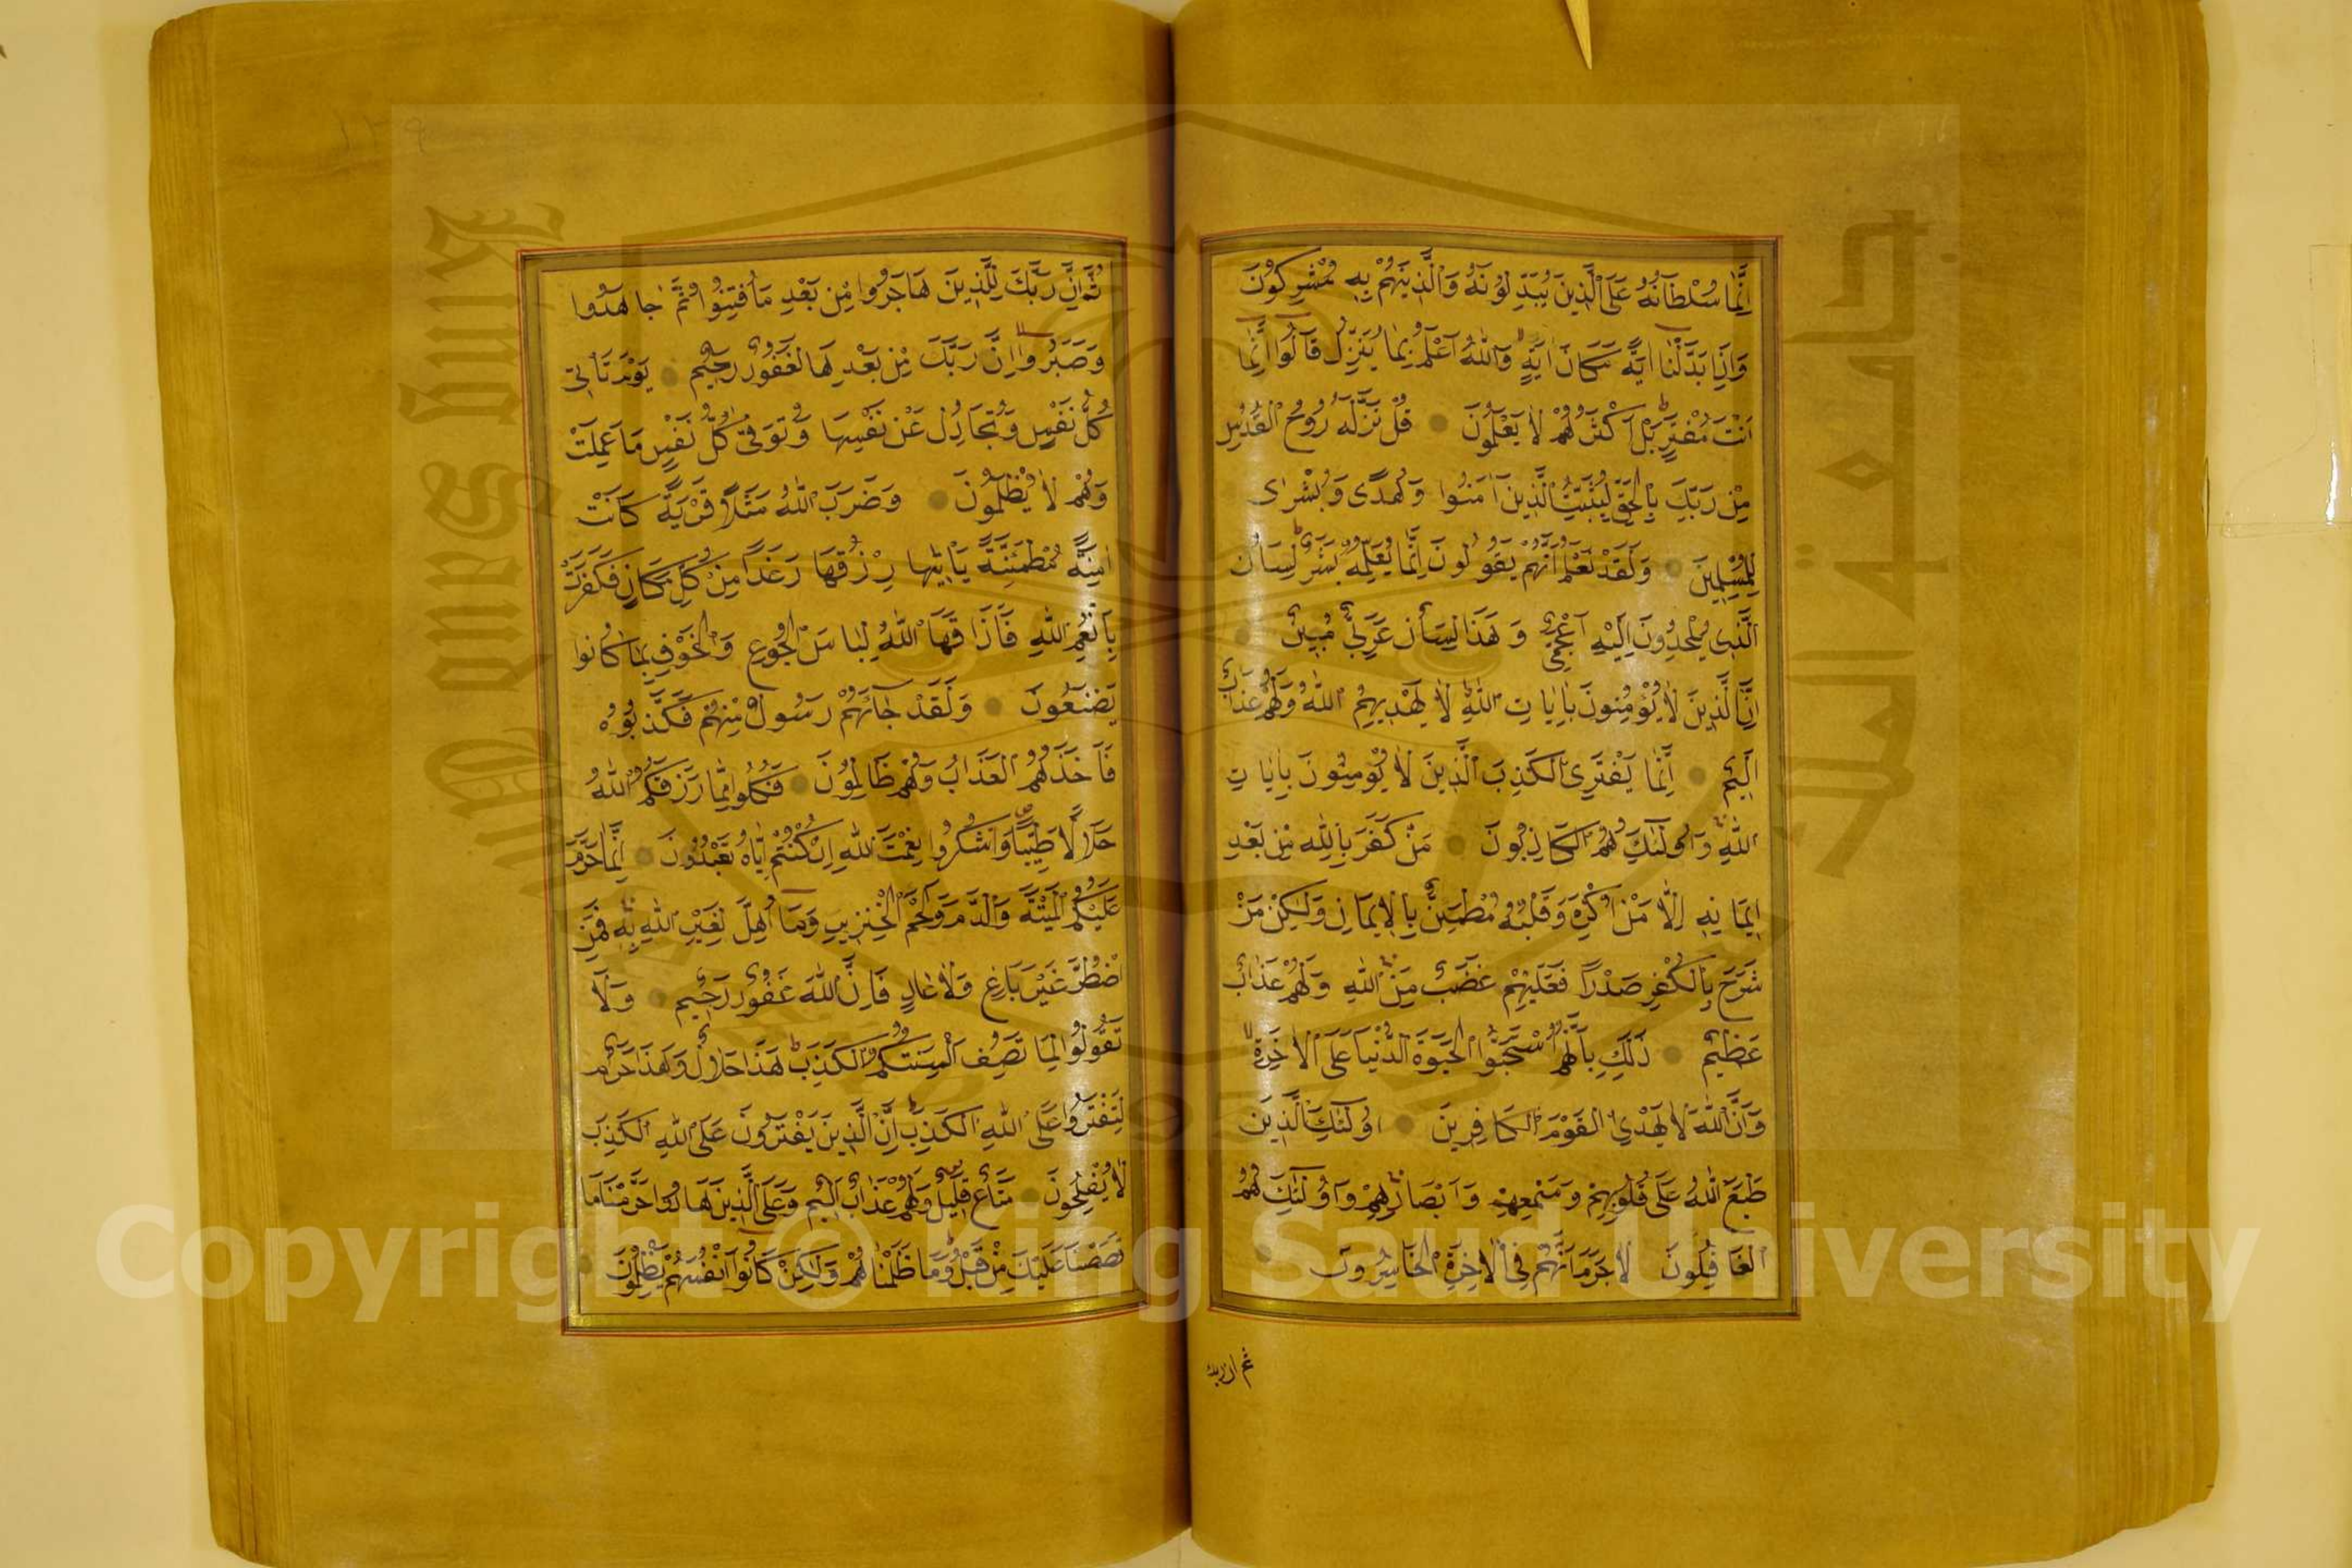 اِنَّمَا سُلْطَانُهُ عَلَى الَّذِينَ يُبَدِّلُونَهُ وَالَّذِينَهُمْ بِهِ مُشْرِكُونَ
وَاِذَا بَدَّلْنَا اٰيَةً مَكَانَ اٰيَةٍ وَاللّٰهُ اَعْلَمُ بِمَا يُنَزِّلُ قَالُوا اِنَّمَا
اَنْتَ مُفْتَرٍ بَلْ اَكْثَرُهُمْ لَا يَعْلَمُونَ قُلْ نَزَّلَهُ رُوحُ الْقُدُسِ
مِنْ رَبِّكَ بِالْحَقِّ لِيُثَبِّتَ الَّذِينَ اٰمَنُوا وَهُدًى وَبُشْرٰى
لِلْمُسْلِمِينَ وَلَقَدْ نَعْلَمُ اَنَّهُمْ يَقُولُونَ اِنَّمَا يُعَلِّمُهُ بَشَرٌ لِسَانُ
الَّذِى يُلْحِدُونَ اِلَيْهِ اَعْجَمِىٌّ وَهَذَا لِسَانٌ عَرَبِىٌّ مُبِينٌ
اِنَّ الَّذِينَ لَا يُؤْمِنُونَ بِاٰيَاتِ اللّٰهِ لَا يَهْدِيهِمُ اللّٰهُ وَلَهُمْ عَذَابٌ
اَلِيمٌ اِنَّمَا يَفْتَرِى الْكَذِبَ الَّذِينَ لَا يُؤْمِنُونَ بِاٰيَاتِ
اللّٰهِ وَاُولٰئِكَ هُمُ الْكَاذِبُونَ مَنْ كَفَرَ بِاللّٰهِ مِنْ بَعْدِ
اِيمَانِهِ اِلَّا مَنْ اُكْرِهَ وَقَلْبُهُ مُطْمَئِنٌّ بِالْاِيمَانِ وَلٰكِنْ مَنْ
شَرَحَ بِالْكُفْرِ صَدْرًا فَعَلَيْهِمْ غَضَبٌ مِنَ اللّٰهِ وَلَهُمْ عَذَابٌ
عَظِيمٌ ذٰلِكَ بِاَنَّهُمُ اسْتَحَبُّوا الْحَيٰوةَ الدُّنْيَا عَلَى الْاٰخِرَةِ
وَاَنَّ اللّٰهَ لَا يَهْدِى الْقَوْمَ الْكَافِرِينَ اُولٰئِكَ الَّذِينَ
طَبَعَ اللّٰهُ عَلَى قُلُوبِهِمْ وَسَمْعِهِمْ وَاَبْصَارِهِمْ وَاُولٰئِكَ هُمُ
الْغَافِلُونَ لَا جَرَمَ اَنَّهُمْ فِى الْاٰخِرَةِ الْخَاسِرُونَ
ثم ان ربك
ثُمَّ اِنَّ رَبَّكَ لِلَّذِينَ هَاجَرُوا مِنْ بَعْدِ مَا فُتِنُوا ثُمَّ جَاهَدُوا
وَصَبَرُوا اِنَّ رَبَّكَ مِنْ بَعْدِهَا لَغَفُورٌ رَحِيمٌ يَوْمَ تَاْتِى
كُلُّ نَفْسٍ تُجَادِلُ عَنْ نَفْسِهَا وَتُوَفّٰى كُلُّ نَفْسٍ مَا عَمِلَتْ
وَهُمْ لَا يُظْلَمُونَ وَضَرَبَ اللّٰهُ مَثَلًا قَرْيَةً كَانَتْ
اٰمِنَةً مُطْمَئِنَّةً يَاْتِيهَا رِزْقُهَا رَغَدًا مِنْ كُلِّ مَكَانٍ فَكَفَرَتْ
بِاَنْعُمِ اللّٰهِ فَاَذَاقَهَا اللّٰهُ لِبَاسَ الْجُوعِ وَالْخَوْفِ بِمَا كَانُوا
يَصْنَعُونَ وَلَقَدْ جَاۤءَهُمْ رَسُولٌ مِنْهُمْ فَكَذَّبُوهُ
فَاَخَذَهُمُ الْعَذَابُ وَهُمْ ظَالِمُونَ فَكُلُوا مِمَّا رَزَقَكُمُ اللّٰهُ
حَلَالًا طَيِّبًا وَاشْكُرُوا نِعْمَتَ اللّٰهِ اِنْ كُنْتُمْ اِيَّاهُ تَعْبُدُونَ اِنَّمَا حَرَّمَ
عَلَيْكُمُ الْمَيْتَةَ وَالدَّمَ وَلَحْمَ الْخِنْزِيرِ وَمَا اُهِلَّ لِغَيْرِ اللّٰهِ بِهِ فَمَنِ
اضْطُرَّ غَيْرَ بَاغٍ وَلَا عَادٍ فَاِنَّ اللّٰهَ غَفُورٌ رَحِيمٌ وَلَا
تَقُولُوا لِمَا تَصِفُ اَلْسِنَتُكُمُ الْكَذِبَ هَذَا حَلَالٌ وَهَذَا حَرَامٌ
لِتَفْتَرُوا عَلَى اللّٰهِ الْكَذِبَ اِنَّ الَّذِينَ يَفْتَرُونَ عَلَى اللّٰهِ الْكَذِبَ
لَا يُفْلِحُونَ مَتَاعٌ قَلِيلٌ وَلَهُمْ عَذَابٌ اَلِيمٌ وَعَلَى الَّذِينَ هَادُوا حَرَّمْنَا مَا
قَصَصْنَا عَلَيْكَ مِنْ قَبْلُ وَمَا ظَلَمْنَاهُمْ وَلٰكِنْ كَانُوا اَنْفُسَهُمْ يَظْلِمُونَ
١٣٩
جامعة الملك سعود
King Saud University
1957
Copyright © King Saud University